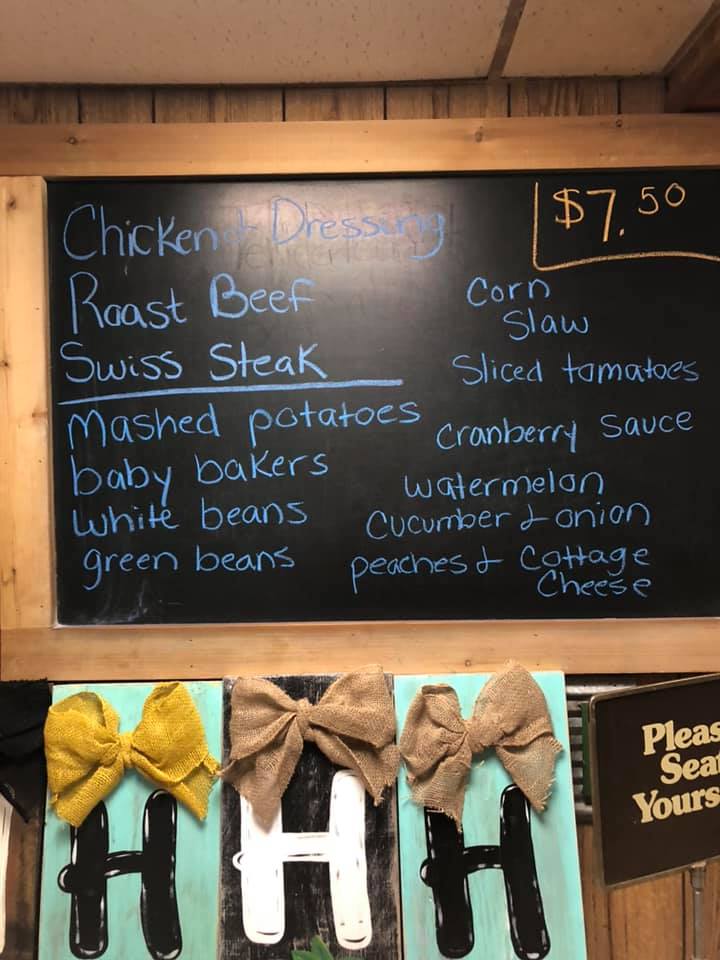 Chicken & Dressing
Roast Beef
Swiss Steak
Mashed potatoes
baby bakers
white beans
green beans
$7.50
Corn
Slaw
Sliced tomatoes
Cranberry Sauce
watermelon
Cucumber & onion
peaches & Cottage
Cheese
H
H
H
Pleas
Seat
Yours